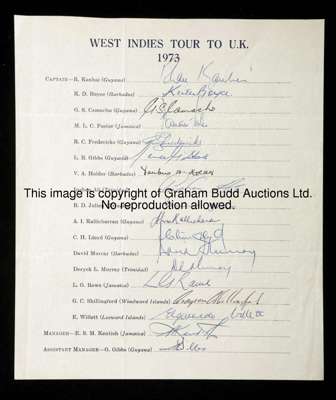 WEST INDIES TOUR TO U.K.
1973
CAPTAIN—R. Kanhai (Guyana) Rohan Kanhai
K. D. Boyce (Barbados) Keith Boyce
G. S. Camacho (Guyana) G S Camacho
M. L. C. Foster (Jamaica)
R. C. Fredericks (Guyana) Fredericks
L. R. Gibbs (Guyana) Lance Gibbs
V. A. Holder (Barbados) Vanburn A. Holder
This image is copyright of Graham Budd Auctions Ltd.
No reproduction allowed.
B. D. Julien
A. I. Kallicharran (Guyana) Kallicharran
C. H. Lloyd (Guyana) Clive Lloyd
David Murray (Barbados) David Murray
Deryck L. Murray (Trinidad) DL Murray
L. G. Rowe (Jamaica) L G Rowe
G. C. Shillingford (Windward Islands) Grayson Shillingford
E. Willett (Leeward Islands) Elquemedo Willett
MANAGER—E. S. M. Kentish (Jamaica)
ASSISTANT MANAGER—O. Gibbs (Guyana) Gibbs